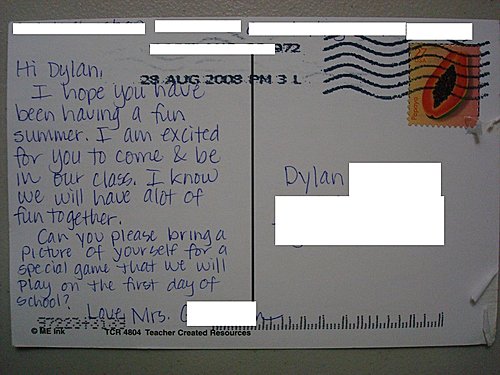 972
28 AUG 2008 PM 3 L
27
Papaya
Hi Dylan,
I hope you have
been having a fun
summer. I am excited
for you to come & be
in our class. I know
we will have alot of
fun together.
Can you please bring a
picture of yourself for a
special game that we will
play on the first day of
school?
Love, Mrs.
Dylan
© ME Ink
TCR 4804 Teacher Created Resources